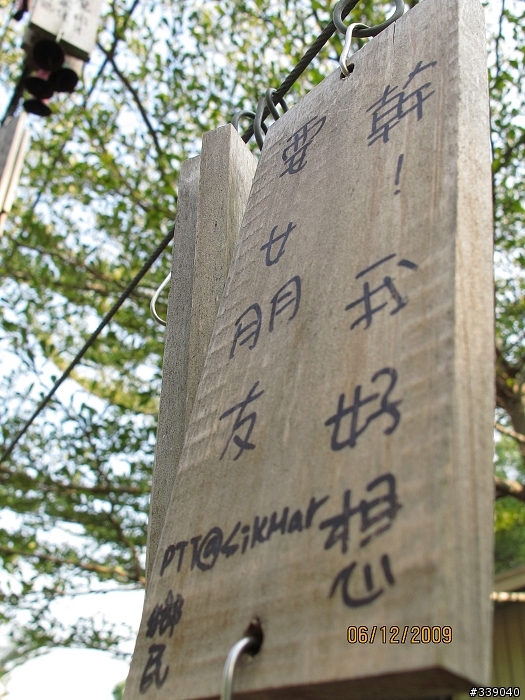 幹！我好想
要女朋友
PTT@SiKHar
鄉民
06/12/2009
#339040